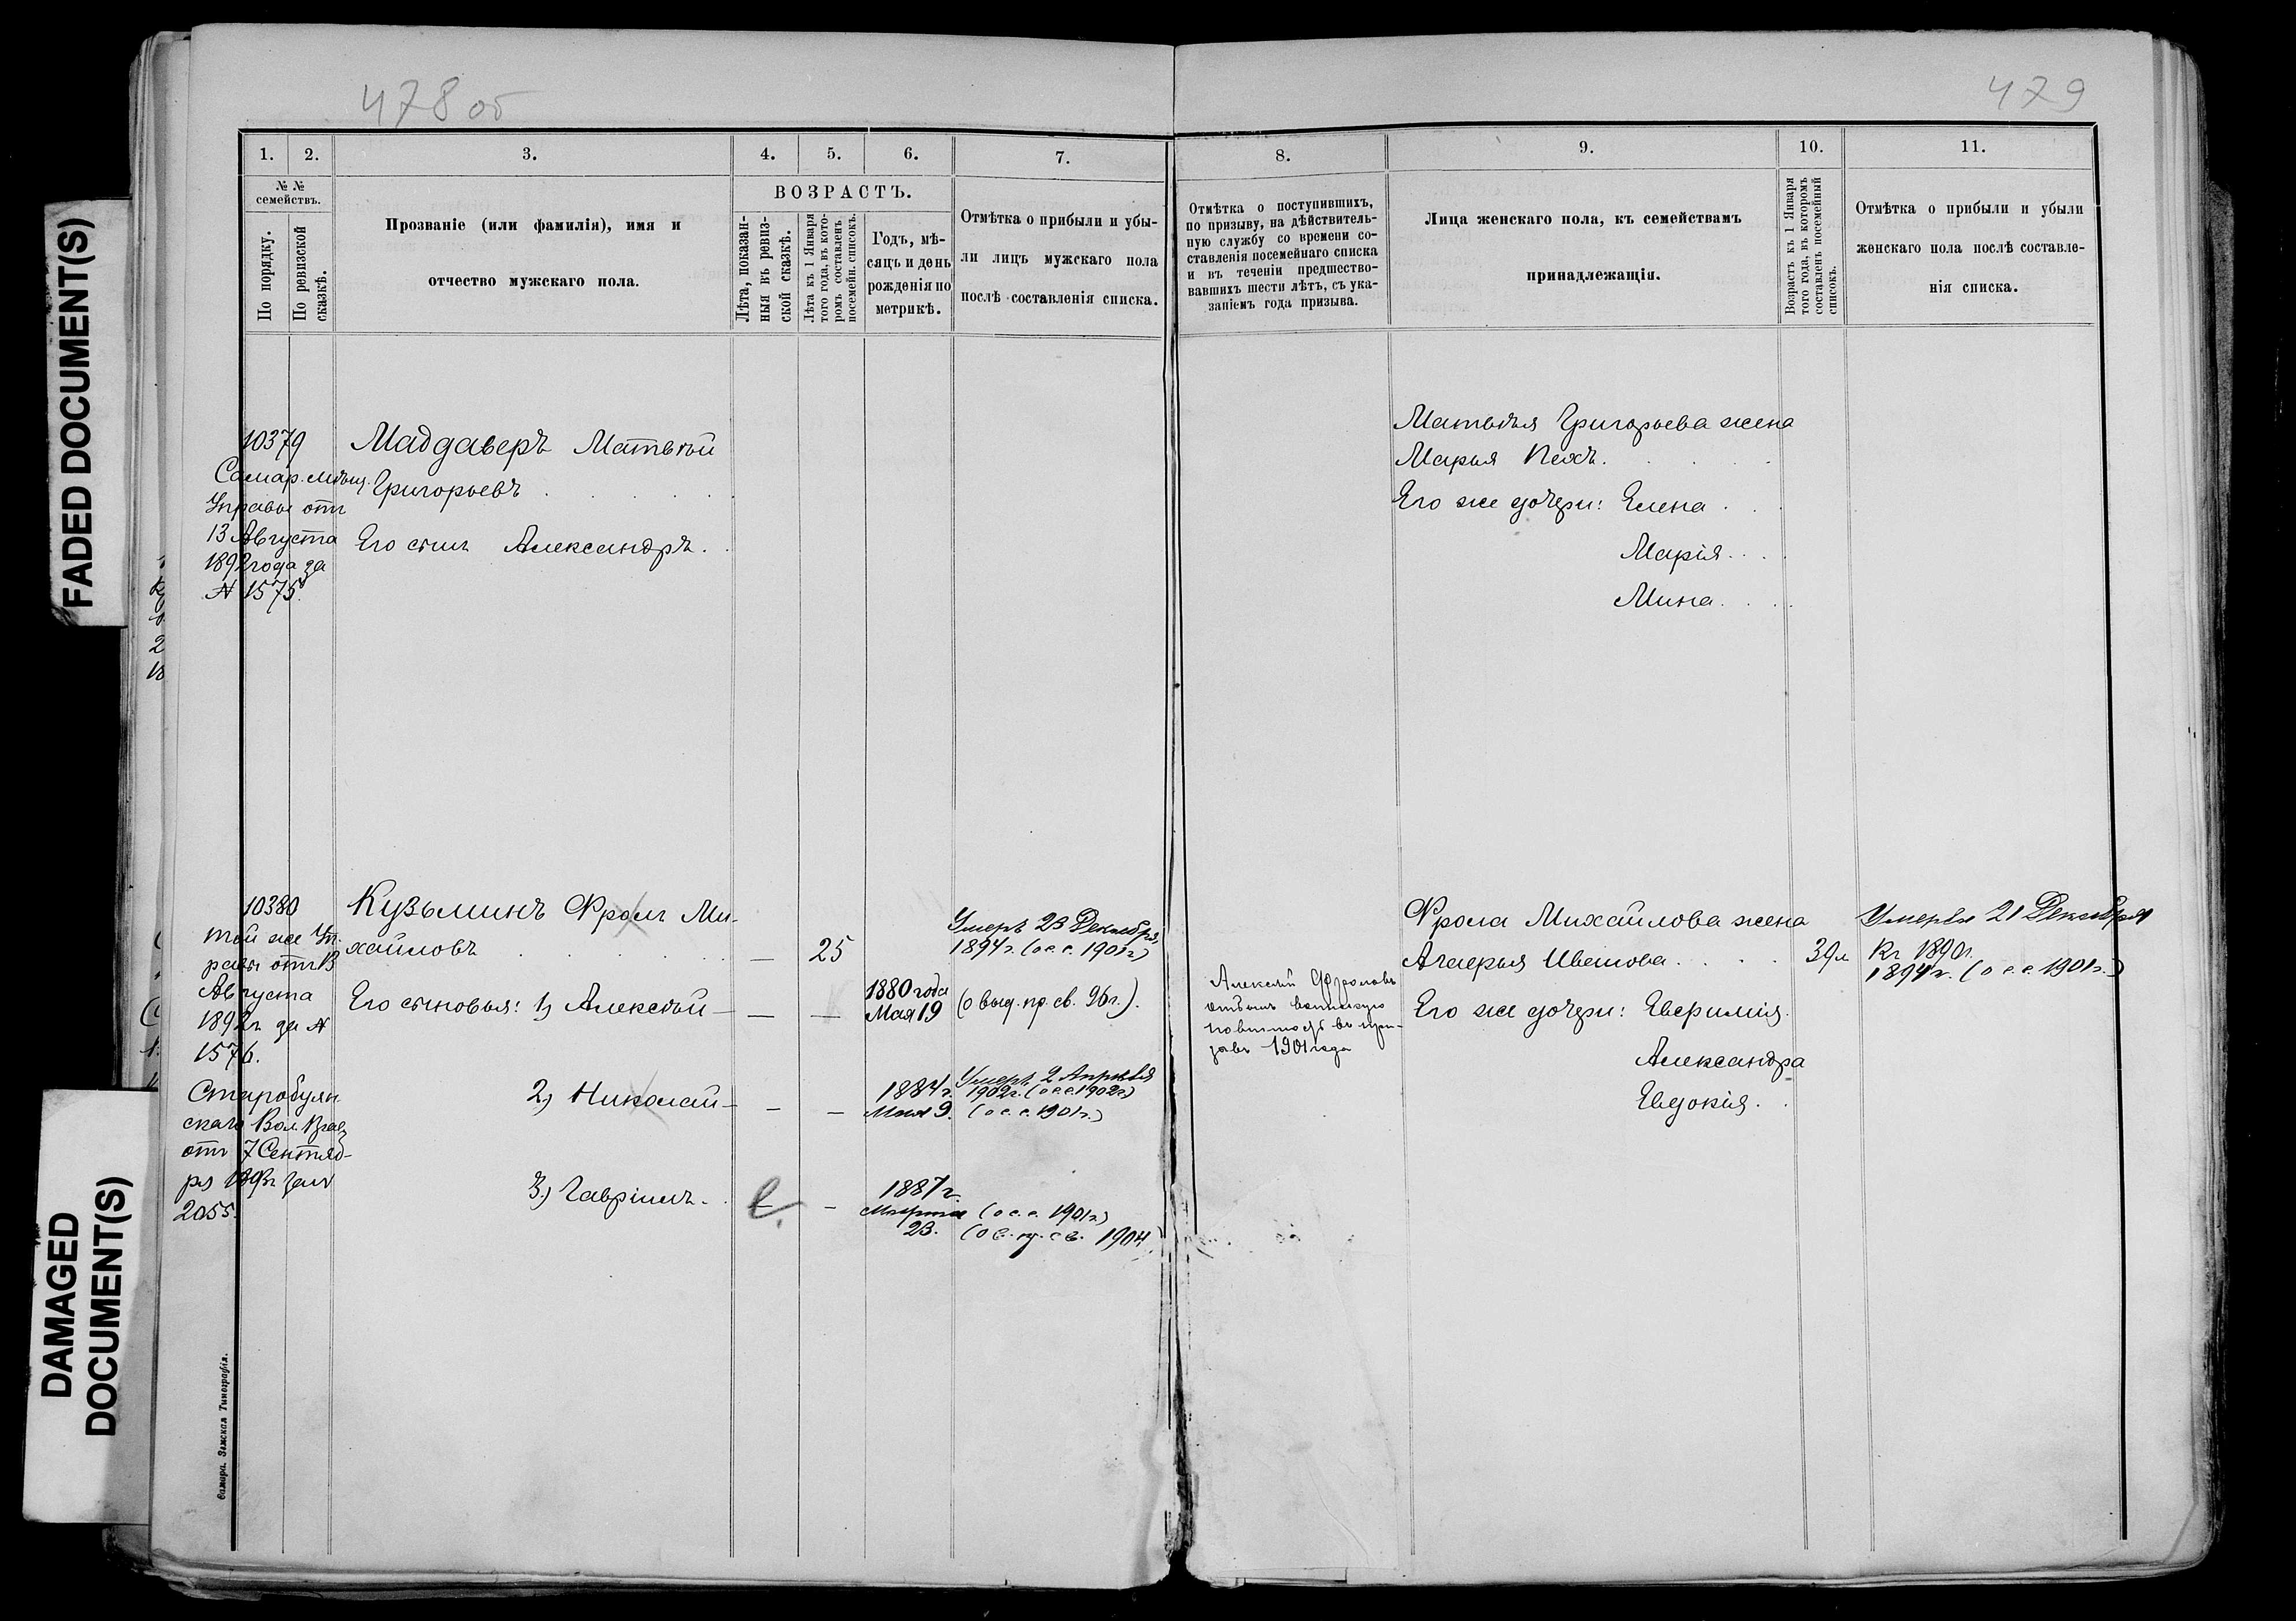 FADED DOCUMENT(S)
DAMAGED
DOCUMENT(S)
478 об
1.
2.
3.
4.
5.
6.
7.
№ №
семействъ.
По порядку.
По ревизской
сказкѣ.
Прозваніе (или фамилія), имя и
отчество мужскаго пола.
ВОЗРАСТЪ.
Лѣта, показан-
ныя въ ревиз-
ской сказкѣ.
Лѣта къ 1 Января
того года, въ кото-
ромъ составленъ
посемейн. списокъ.
Годъ, мѣ-
сяцъ и день
рожденія по
метрикѣ.
Отмѣтка о прибыли и убы-
ли лицъ мужскаго пола
послѣ составленія списка.
10379
Самар. мѣщ.
Управы отъ
13 Августа
1892 года за
№ 1575.
Маддаверъ Матвѣй
Григорьевъ
Его сынъ Александръ.
10380
той же Уп-
равы отъ 13
Августа
1892 г. за №
1576.
Старобуян
скаго Вол. Прав
отъ 7 Сентяб-
ря
2055.
Кузьминъ Фролъ Ми-
хайловъ
— 25
Умеръ 23 Декабря
1894 г. (о с. с. 1901 г.)
Его сыновья: 1) Алексѣй — — —
1880 года
Мая 19
(о выд. пр. св. 96 г.).
2) Николай — — —
1884 г.
Мая 9.
Умеръ 2 Апрѣля
1902 г. (о с. с. 1902 г.)
(о с. с. 1901 г.)
3) Гавріилъ —
1887 г.
Марта
23.
(о с. с. 1901 г.)
(о в. пр. св. 1904
Самара. Земская Типографія.
479
8.
9.
10.
11.
Отмѣтка о поступившихъ,
по призыву, на дѣйствитель-
ную службу со времени со-
ставленія посемейнаго списка
и въ теченіи предшество-
вавшихъ шести лѣтъ, съ ука-
заніемъ года призыва.
Лица женскаго пола, къ семействамъ
принадлежащія.
Возрастъ къ 1 Января
того года, въ которомъ
составленъ посемейный
списокъ.
Отмѣтка о прибыли и убыли
женскаго пола послѣ составле-
нія списка.
Матвѣя Григорьева жена
Марья
Его же дочери: Елена
Марія
Мина
Фрола Михайлова жена
39 л
Его же дочери: Евфимія.
Александра
Евдокія
Умерла 21 Декабря
1894 г. (о с. с. 1901 г.)
Алексѣй Фроловъ
отбылъ воинскую
повинность въ при-
зывъ 1901 года